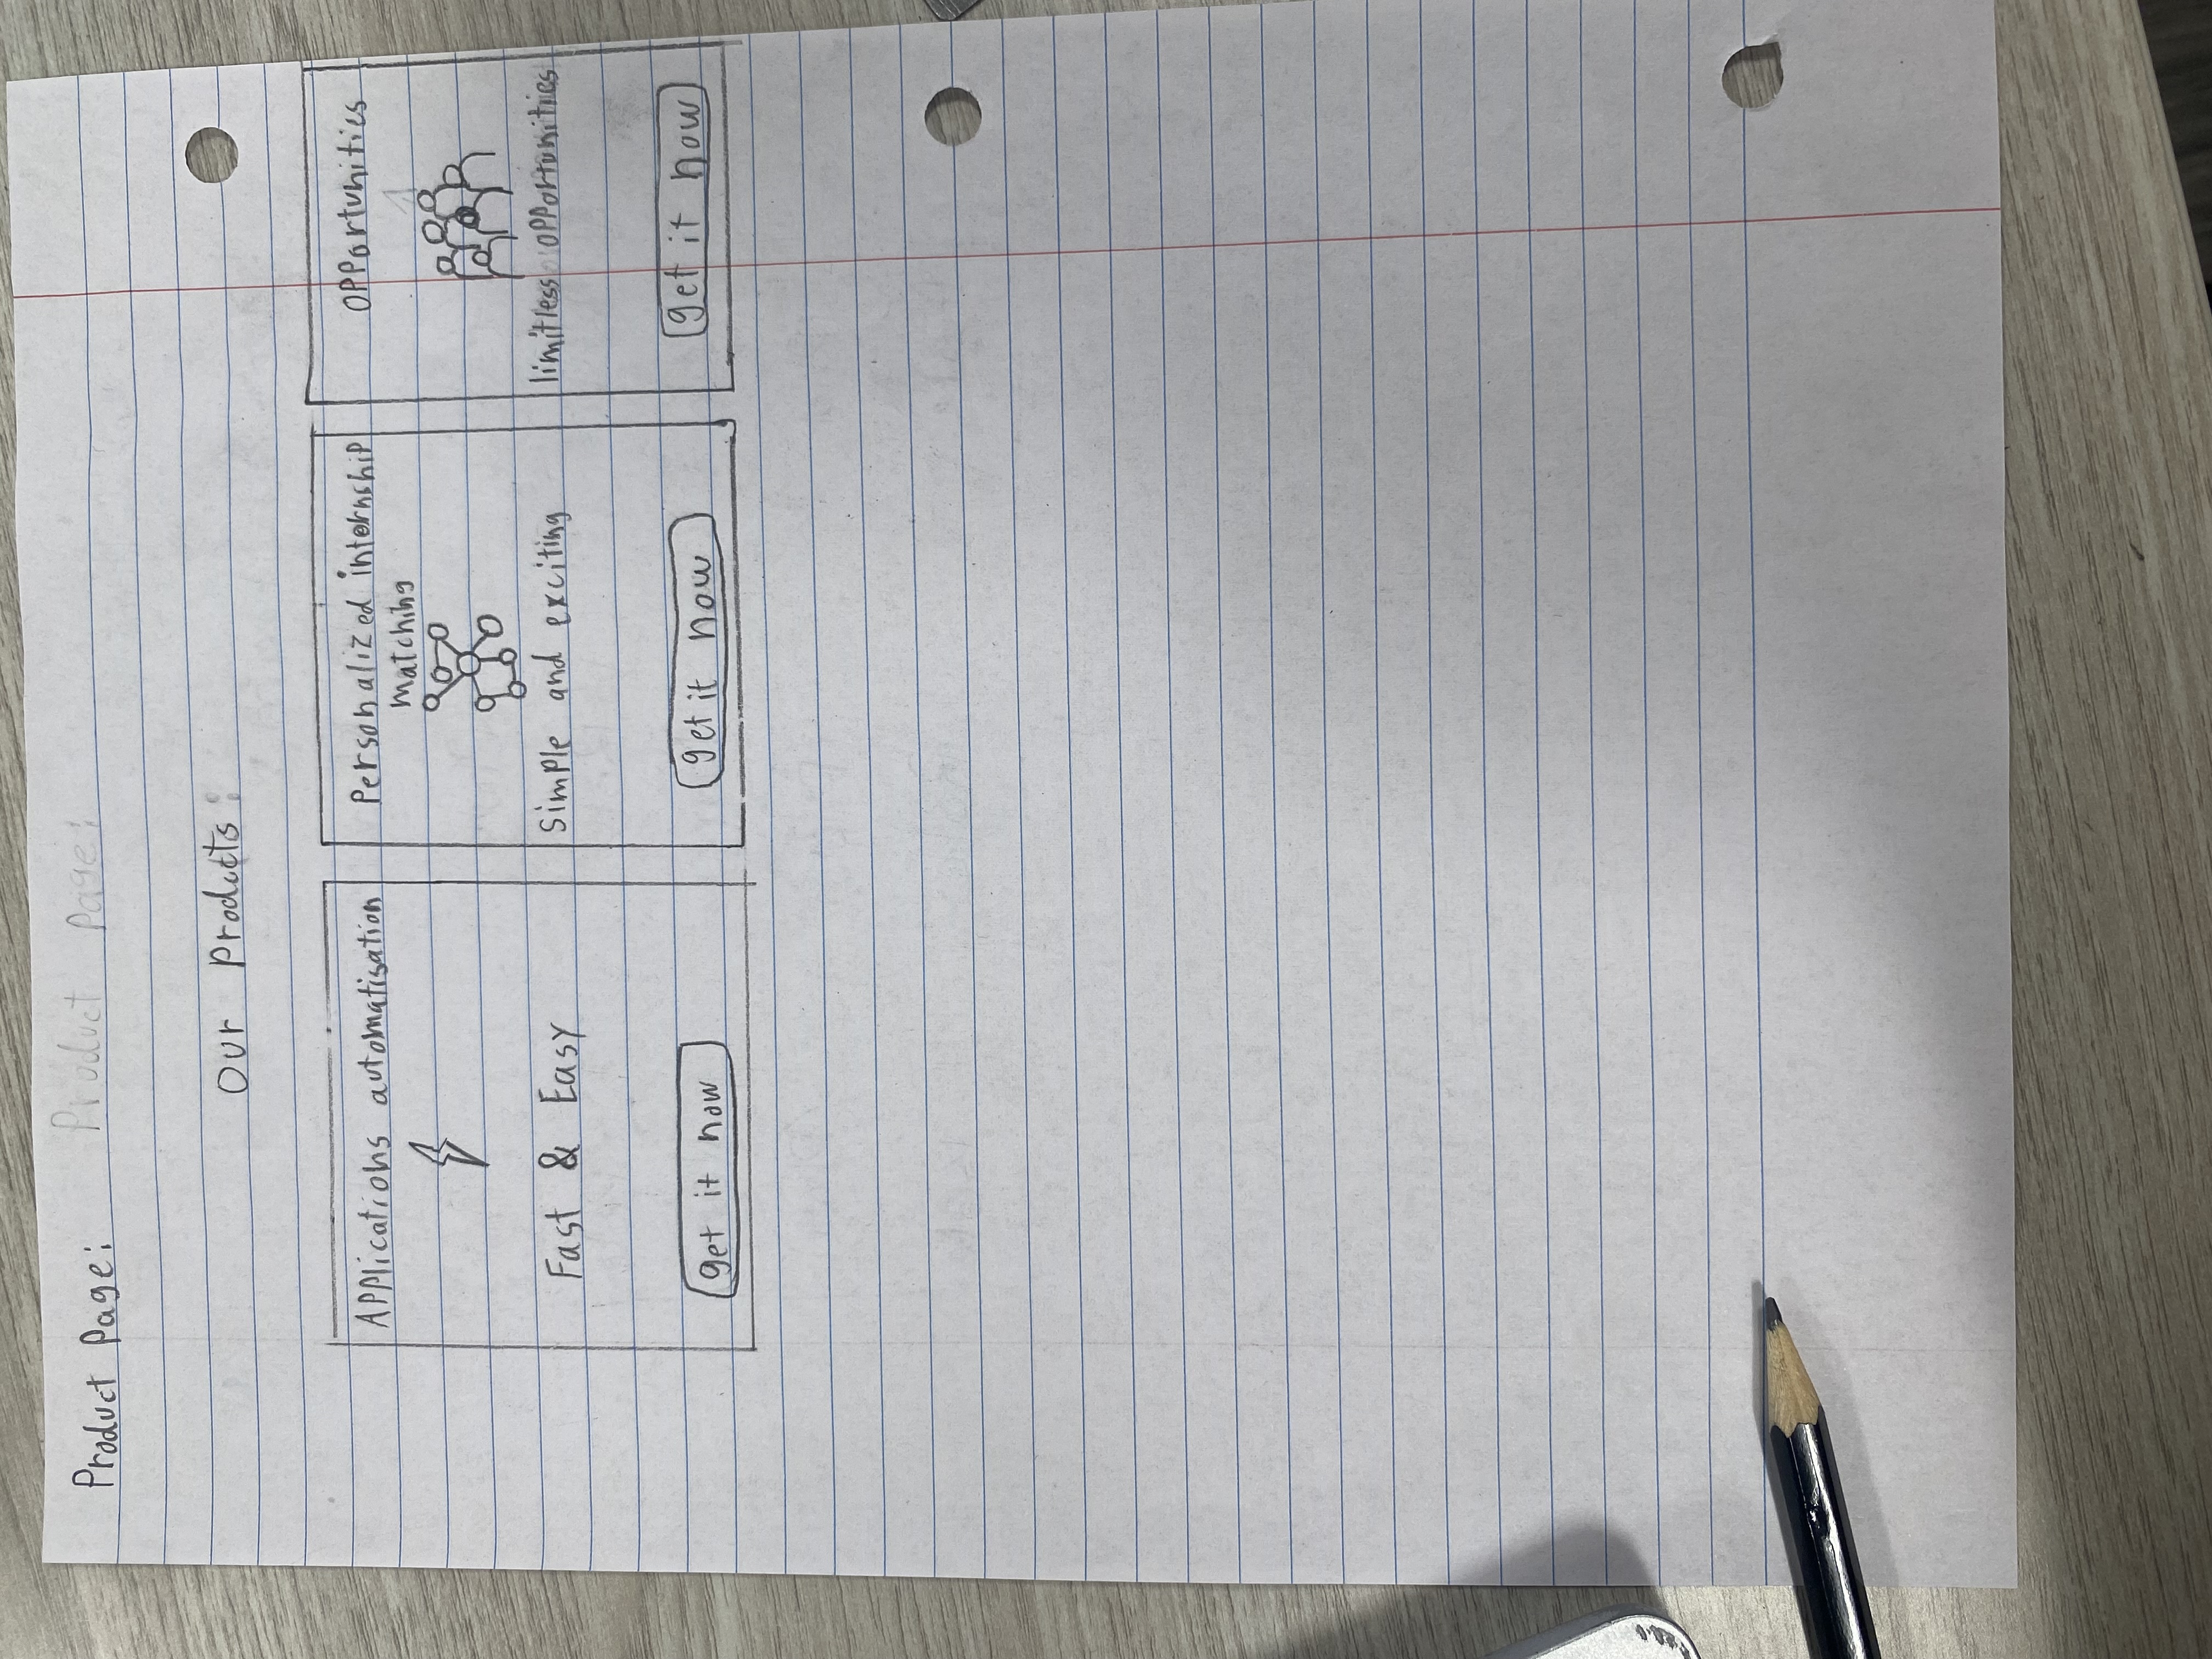 Product Page:
Product Page:
Our Products:
Applications automatisation
Fast & Easy
get it now
Personalized internship
matching
Simple and exciting
get it now
Opportunities
limitless opportunities
get it now